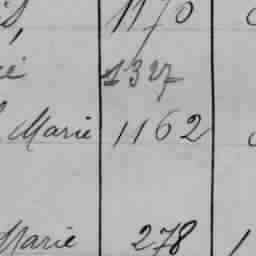 1170
1327
Marie 1162
Marie 278